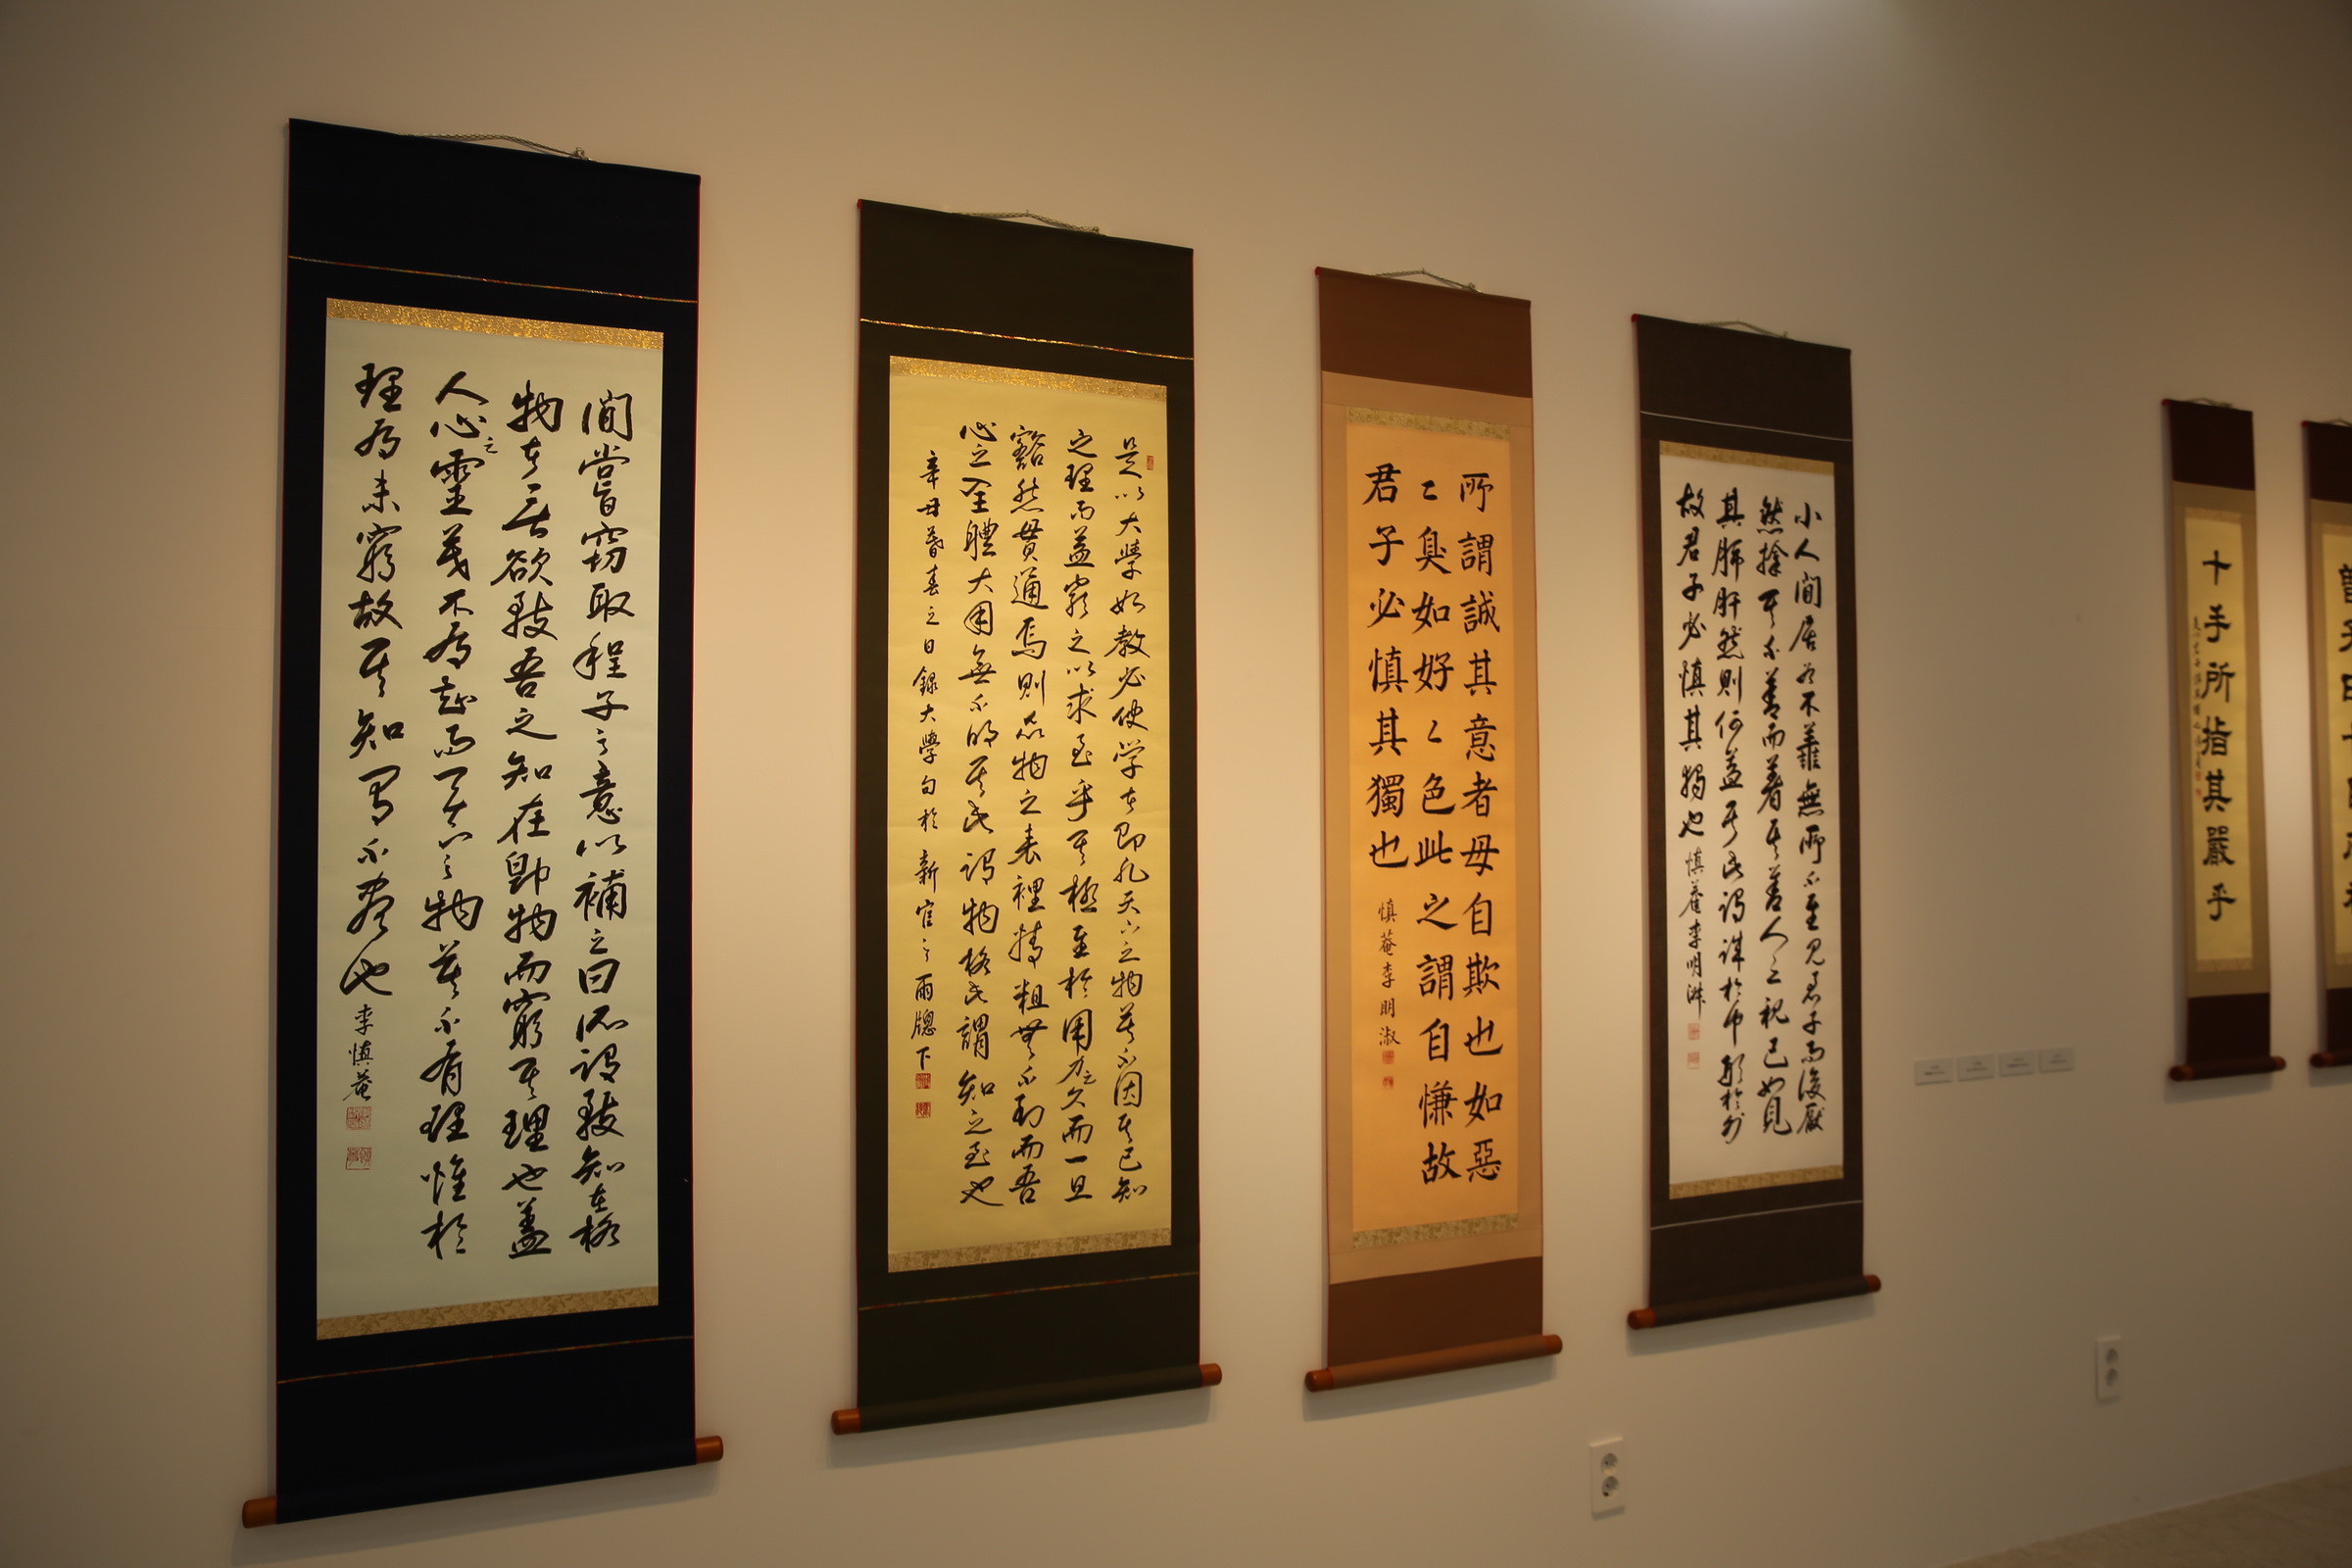 間嘗竊取程子之意以補之曰所謂致知在格
物者言欲致吾之知在即物而窮其理也蓋
人心之靈莫不有知而天下之物莫不有理惟於
理有未窮故其知有不盡也 李慎菴
是以大學始教必使学者即凡天下之物莫不因其已知
之理而益窮之以求至乎其極至於用力之久而一旦
豁然貫通焉則衆物之表裡精粗無不到而吾
心之全體大用無不明矣此謂物格此謂知之至也
辛丑暮春之日錄大學句於新官之雨牕下
所謂誠其意者毋自欺也如惡
〻臭如好〻色此之謂自慊故
君子必慎其獨也 慎菴李明淑
小人間居為不善無所不至見君子而後厭
然揜其不善而著其善人之視己如見
其肺肝然則何益矣此謂誠於中形於外
故君子必慎其獨也 慎菴李明淑
十手所指其嚴乎